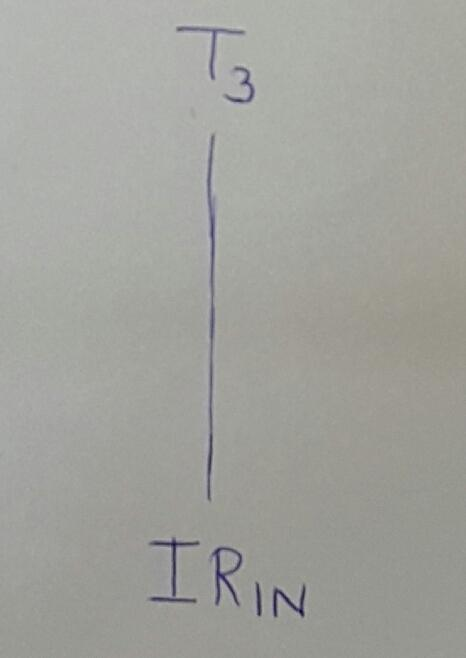 T3
IRIN